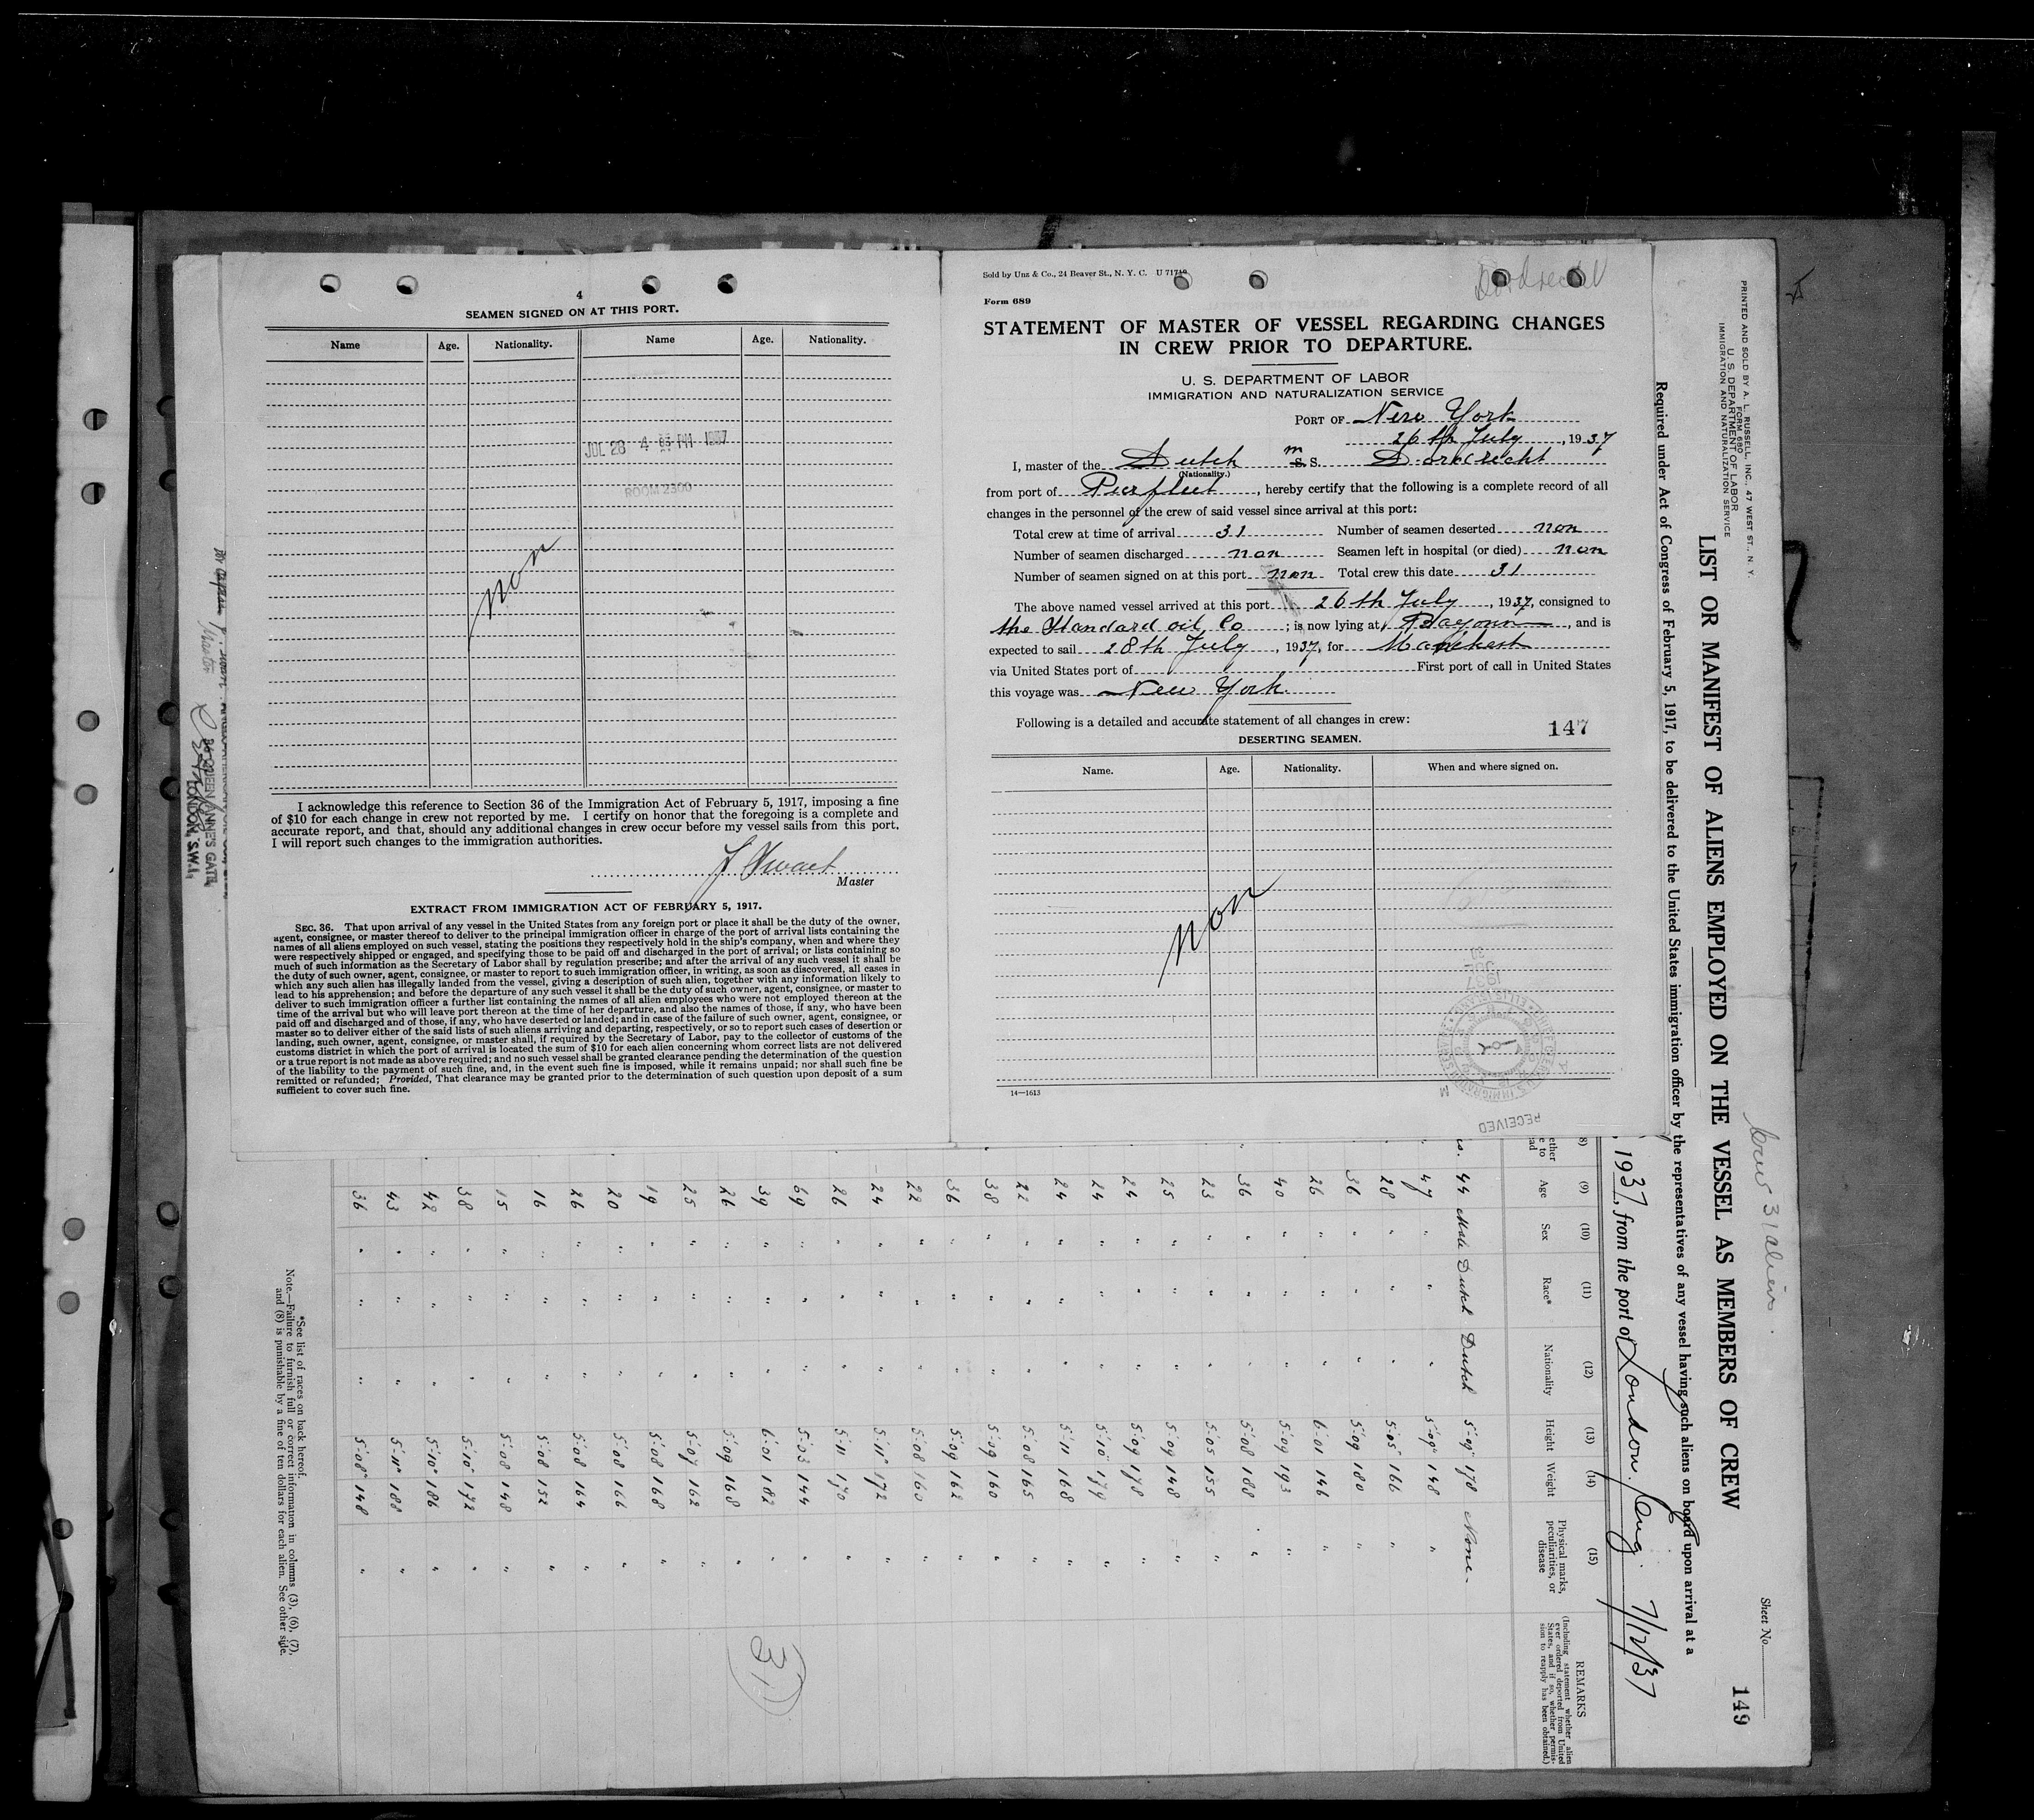 4
SEAMEN SIGNED ON AT THIS PORT.
Name Age. Nationality. Name Age. Nationality.
JUL 28 4 PM 1937
ROOM 2300
non
I acknowledge this reference to Section 36 of the Immigration Act of February 5, 1917, imposing a fine
of $10 for each change in crew not reported by me. I certify on honor that the foregoing is a complete and
accurate report, and that, should any additional changes in crew occur before my vessel sails from this port,
I will report such changes to the immigration authorities.
Master
EXTRACT FROM IMMIGRATION ACT OF FEBRUARY 5, 1917.
SEC. 36. That upon arrival of any vessel in the United States from any foreign port or place it shall be the duty of the owner,
agent, consignee, or master thereof to deliver to the principal immigration officer in charge of the port of arrival lists containing the
names of all aliens employed on such vessel, stating the positions they respectively hold in the ship's company, when and where they
were respectively shipped or engaged, and specifying those to be paid off and discharged in the port of arrival; or lists containing so
much of such information as the Secretary of Labor shall by regulation prescribe; and after the arrival of any such vessel it shall be
the duty of such owner, agent, consignee, or master to report to such immigration officer, in writing, as soon as discovered, all cases in
which any such alien has illegally landed from the vessel, giving a description of such alien, together with any information likely to
lead to his apprehension; and before the departure of any such vessel it shall be the duty of such owner, agent, consignee, or master to
deliver to such immigration officer a further list containing the names of all alien employees who were not employed thereon at the
time of the arrival but who will leave port thereon at the time of her departure, and also the names of those, if any, who have been
paid off and discharged and of those, if any, who have deserted or landed; and in case of the failure of such owner, agent, consignee, or
master so to deliver either of the said lists of such aliens arriving and departing, respectively, or so to report such cases of desertion or
landing, such owner, agent, consignee, or master shall, if required by the Secretary of Labor, pay to the collector of customs of the
customs district in which the port of arrival is located the sum of $10 for each alien concerning whom correct lists are not delivered
or a true report is not made as above required; and no such vessel shall be granted clearance pending the determination of the question
of the liability to the payment of such fine, and, in the event such fine is imposed, while it remains unpaid; nor shall such fine be
remitted or refunded; Provided, That clearance may be granted prior to the determination of such question upon deposit of a sum
sufficient to cover such fine.
Sold by Unz & Co., 24 Beaver St., N. Y. C. U 71719
Dordrecht
Form 689
STATEMENT OF MASTER OF VESSEL REGARDING CHANGES
IN CREW PRIOR TO DEPARTURE.
U. S. DEPARTMENT OF LABOR
IMMIGRATION AND NATURALIZATION SERVICE
PORT OF New York
26th July, 1937
I, master of the Dutch m S. S. Dordrecht
(Nationality.)
from port of Purfleet, hereby certify that the following is a complete record of all
changes in the personnel of the crew of said vessel since arrival at this port:
Total crew at time of arrival 31 Number of seamen deserted non
Number of seamen discharged non Seamen left in hospital (or died) non
Number of seamen signed on at this port non Total crew this date 31
The above named vessel arrived at this port 26th July, 1937, consigned to
the Standard oil Co; is now lying at Bayonn, and is
expected to sail 28th July, 1937, for
via United States port of First port of call in United States
this voyage was New York.
Following is a detailed and accurate statement of all changes in crew:
147
DESERTING SEAMEN.
Name. Age. Nationality. When and where signed on.
non
1937
RECEIVED
14—1613
PRINTED AND SOLD BY A. L. RUSSELL, INC., 47 WEST ST., N. Y.
FORM 680
U. S. DEPARTMENT OF LABOR
IMMIGRATION AND NATURALIZATION SERVICE
Sheet No. 149
LIST OR MANIFEST OF ALIENS EMPLOYED ON THE VESSEL AS MEMBERS OF CREW
Required under Act of Congress of February 5, 1917, to be delivered to the United States immigration officer by the representatives of any vessel having such aliens on board upon arrival at a
, 1937, from the port of London. 7/12/37
(9) (10) (11) (12) (13) (14) (15)
Age Sex Race* Nationality Height Weight Physical marks, peculiarities, or disease
REMARKS
(Including statement whether alien ever ordered deported from United States, and if so, whether permission to reapply has been obtained.)
44 Male Dutch Dutch 5-09" 178 None
47 " " " 5-09" 148 "
28 " " " 5-05" 166 "
36 " " " 5-09 180 "
26 " " " 6-01 146 "
40 " " " 5-09 193 "
36 " " " 5-08 188 "
23 " " " 5-05 155 "
25 " " " 5-09 148 "
24 " " " 5-09 178 "
24 " " " 5-10" 179 "
24 " " " 5-11 168 "
22 " " " 5-08 165 "
38 " " " 5-09 160 "
36 " " " 5-09 162 "
22 " " " 5-08 160 "
24 " " " 5-11" 172 "
26 " " " 5-11 170 "
69 " " " 5-03 144 "
39 " " " 6-01 182 "
26 " " " 5-09 168 "
25 " " " 5-07 162 "
19 " " " 5-08 168 "
20 " " " 5-08 166 "
26 " " " 5-08 164 "
16 " " " 5-08 152 "
15 " " " 5-08 148 "
38 " " " 5-10" 172 "
42 " " " 5-10" 186 "
43 " " " 5-11" 188 "
36 " " " 5-08" 148 "
31
*See list of races on back hereof.
Note.—Failure to furnish full or correct information in columns (3), (6), (7),
and (8) is punishable by a fine of ten dollars for each alien. See other side.
QUEEN ANNE'S GATE,
LONDON, S.W.1.